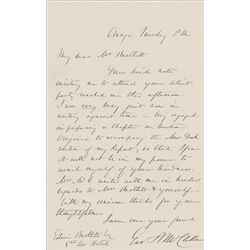 Orange Tuesday P.M.
My dear Mr Bartlett
Your kind note
inviting me to attend your whist
party reached me this afternoon.
I am very busy just now in
writing against time - am engaged
in preparing a chapter on
to accompany the
edition of my Report, so that I fear
it will not be in my power to
avail myself of your kindness.
Mrs McC unites with me in kindest
regards to Mrs Bartlett & yourself
With my sincere thanks for your
thoughtfulness
I am your friend
Geo B McClellan
Edwin Bartlett Esq
5th Av Hotel